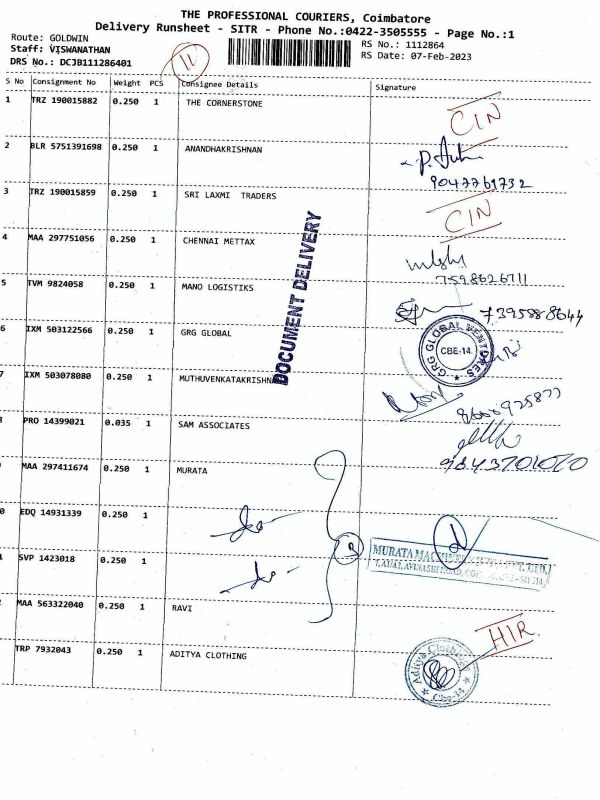 THE PROFESSIONAL COURIERS, Coimbatore
Delivery Runsheet - SITR - Phone No.:0422-3505555 - Page No.:1
Route: GOLDWIN
RS No.: 1112864
Staff: VISWANATHAN
RS Date: 07-Feb-2023
DRS No.: DCJB111286401
11
S No Consignment No Weight PCS Consignee Details Signature
1 TRZ 190015882 0.250 1 THE CORNERSTONE CIN
2 BLR 5751391698 0.250 1 ANANDHAKRISHNAN
9047769732
3 TRZ 190015859 0.250 1 SRI LAXMI TRADERS CIN
4 MAA 297751056 0.250 1 CHENNAI METTAX
7598626711
5 TVM 9824058 0.250 1 MANO LOGISTIKS 7395888644
6 IXM 503122566 0.250 1 GRG GLOBAL
GRG GLOBAL VENTURES
CBE-14
DOCUMENT DELIVERY
7 IXM 503078080 0.250 1 MUTHUVENKATAKRISHN
8600925877
PRO 14399021 0.035 1 SAM ASSOCIATES
9843701070
MAA 297411674 0.250 1 MURATA
0 EDQ 14931339 0.250 1
R
MURATA
1 SVP 1423018 0.250 1
MAA 563322040 0.250 1 RAVI
HIR
TRP 7932043 0.250 1 ADITYA CLOTHING
Aditya Clothing
Cbe-14